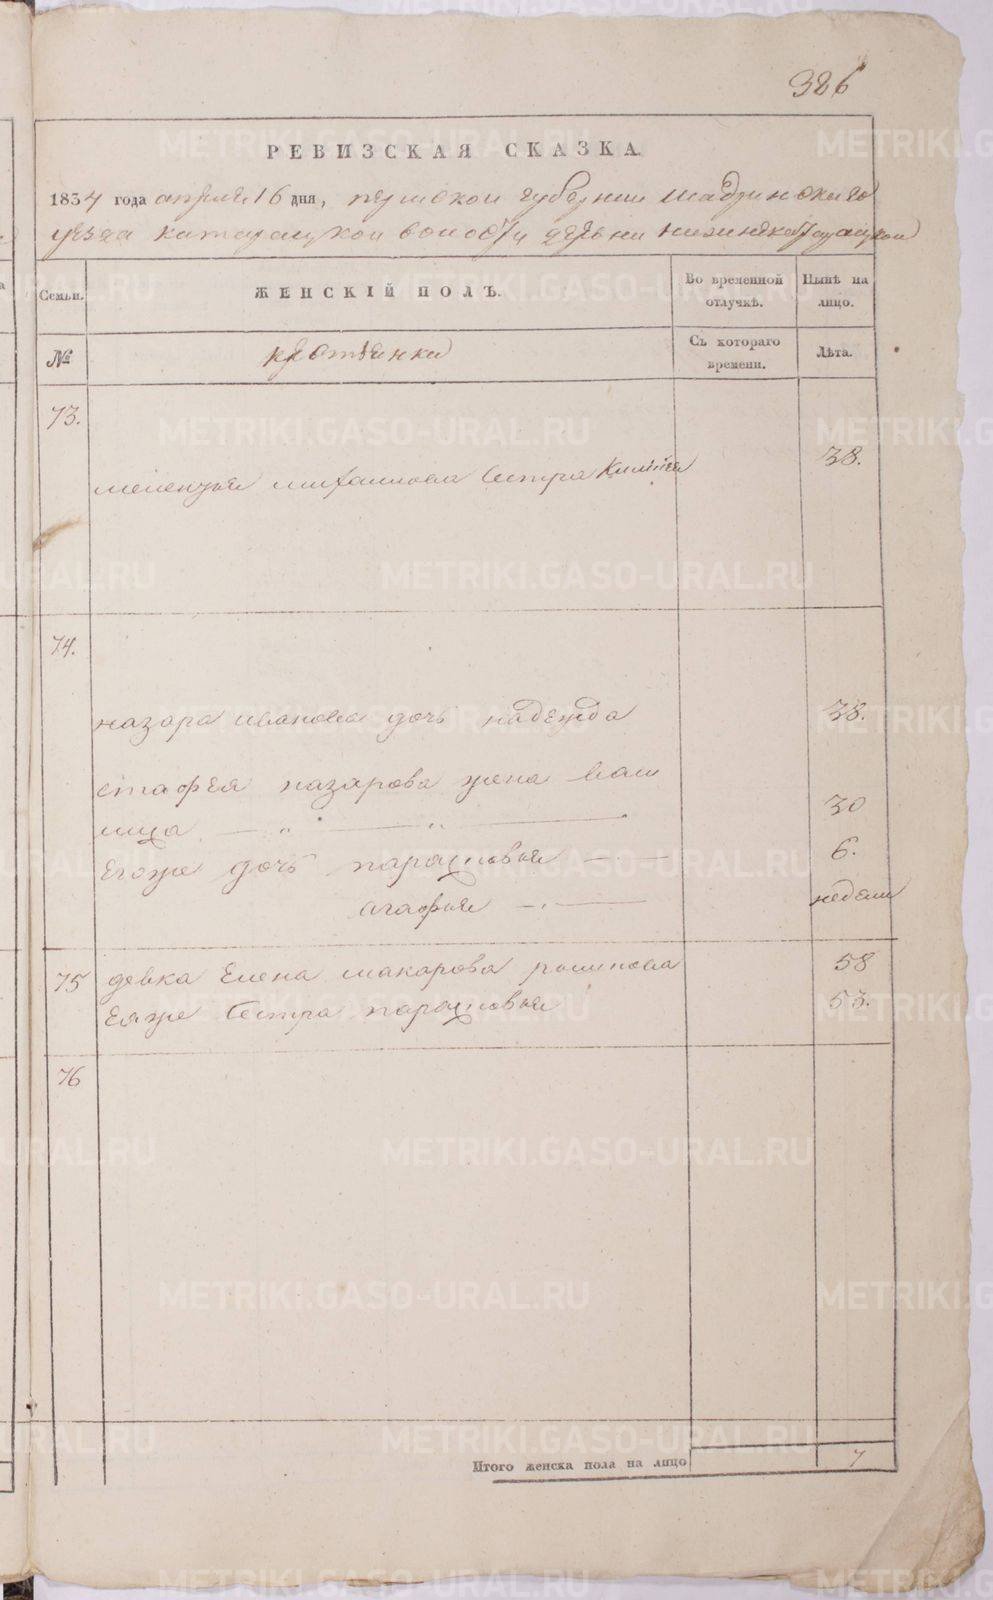 386
РЕВИЗСКАЯ СКАЗКА
1834 года апреля 16 дня, пермской губернии шадринскаго
уезда катарацкой волости деревни
Семьи.
ЖЕНСКІЙ ПОЛЪ.
Во временной отлучкѣ.
Нынѣ на лицо.
№
крестьянки
Съ котораго времени.
Лѣта.
73.
михаилова сестра 38.
74.
назара иванова дочь надежда 38.
стафея назарова жена васи
лиса — „ — „ — 30
Егоже дочь парасковья — 6.
агафья — недели
75 девка Елена макарова 58
Еяже сестра парасковья 53.
76
Итого женска пола на лицо 7
METRIKI.GASO-URAL.RU